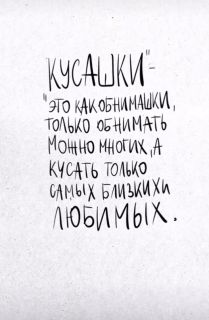 КУСАШКИ"-
"ЭТО КАК ОБНИМАШКИ,
ТОЛЬКО ОБНИМАТЬ
МОЖНО МНОГИХ, А
КУСАТЬ ТОЛЬКО
САМЫХ БЛИЗКИХ И
ЛЮБИМЫХ.